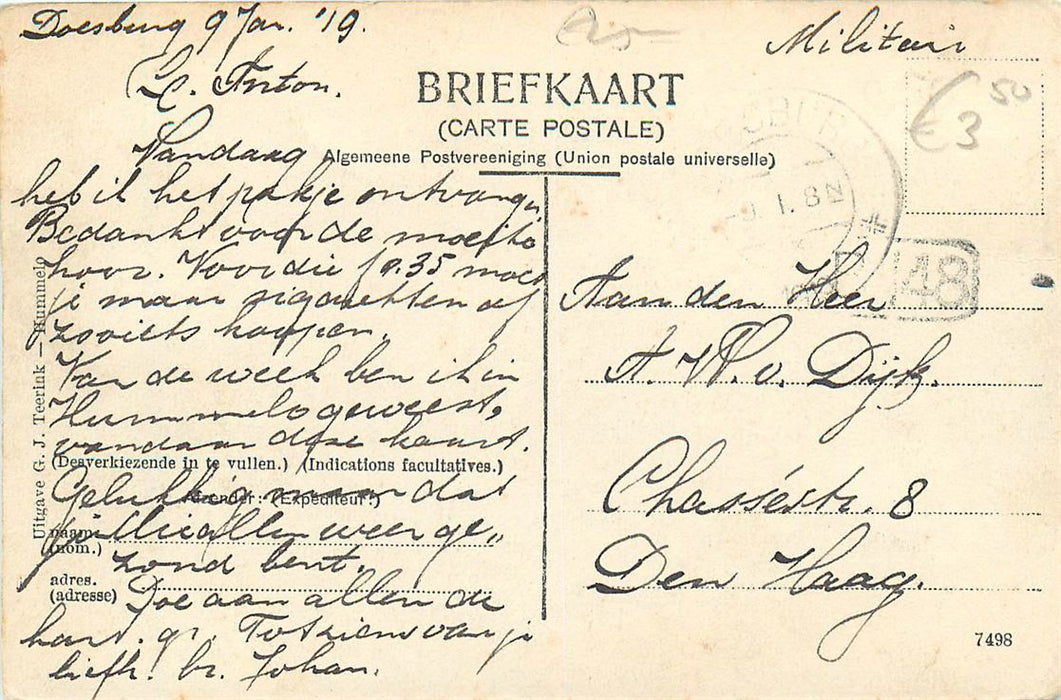 Doesburg 9 Jan. '19.
Militair
€ 3 50
L. Anton.
BRIEFKAART
(CARTE POSTALE)
Algemeene Postvereeniging (Union postale universelle)
Vandaag
heb ik het pakje ontvangen
Bedankt voor de moeite
hoor. Voor die f 0.35 moet
je maar sigaretten of
zooiets koopen.
Van de week ben ik in
Hummelo geweest,
vandaar deze kaart.
(Desverkiezende in te vullen.) (Indications facultatives.)
Gelukkig maar dat
Afzender: (Expéditeur:)
jullie allen weer ge„
naam.
(nom.)
zond bent.
adres.
(adresse)
Doe aan allen de
hart. gr. Tot ziens van je
liefh. br. Johan.
Uitgave G. J. Teerink — Hummelo
-9.1.8N
48
Aan den Heer
A. W. v. Dijk.
Chasséstr. 8
Den Haag.
7498